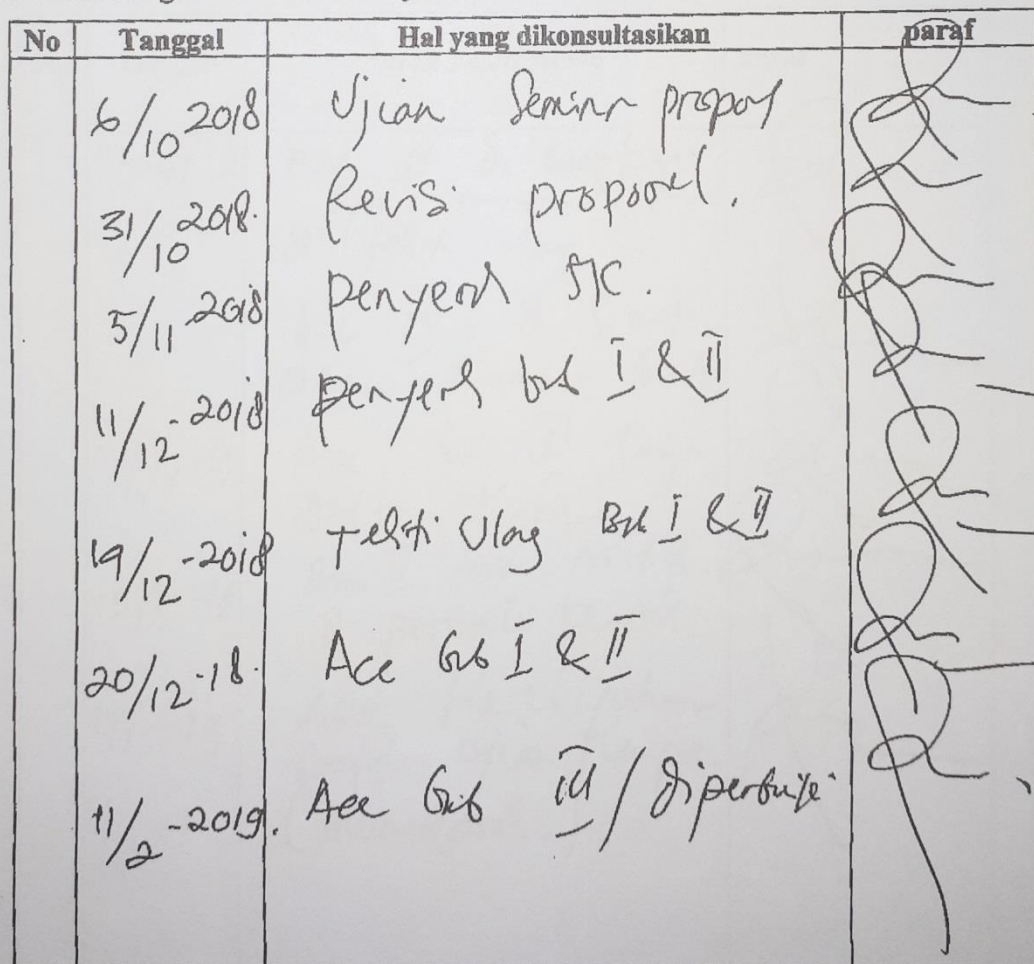 No Tanggal Hal yang dikonsultasikan paraf
6/10 2018 Ujian Seminr propos
31/10 2018. Revisi proposel.
5/11 2018 penyerh SK.
11/12-2018 penyerh bab I & II
19/12-2018 teliti Ulag Bab I & II
20/12-18. Acc bab I & II
11/2-2019. Acc bab III / diperbaiki